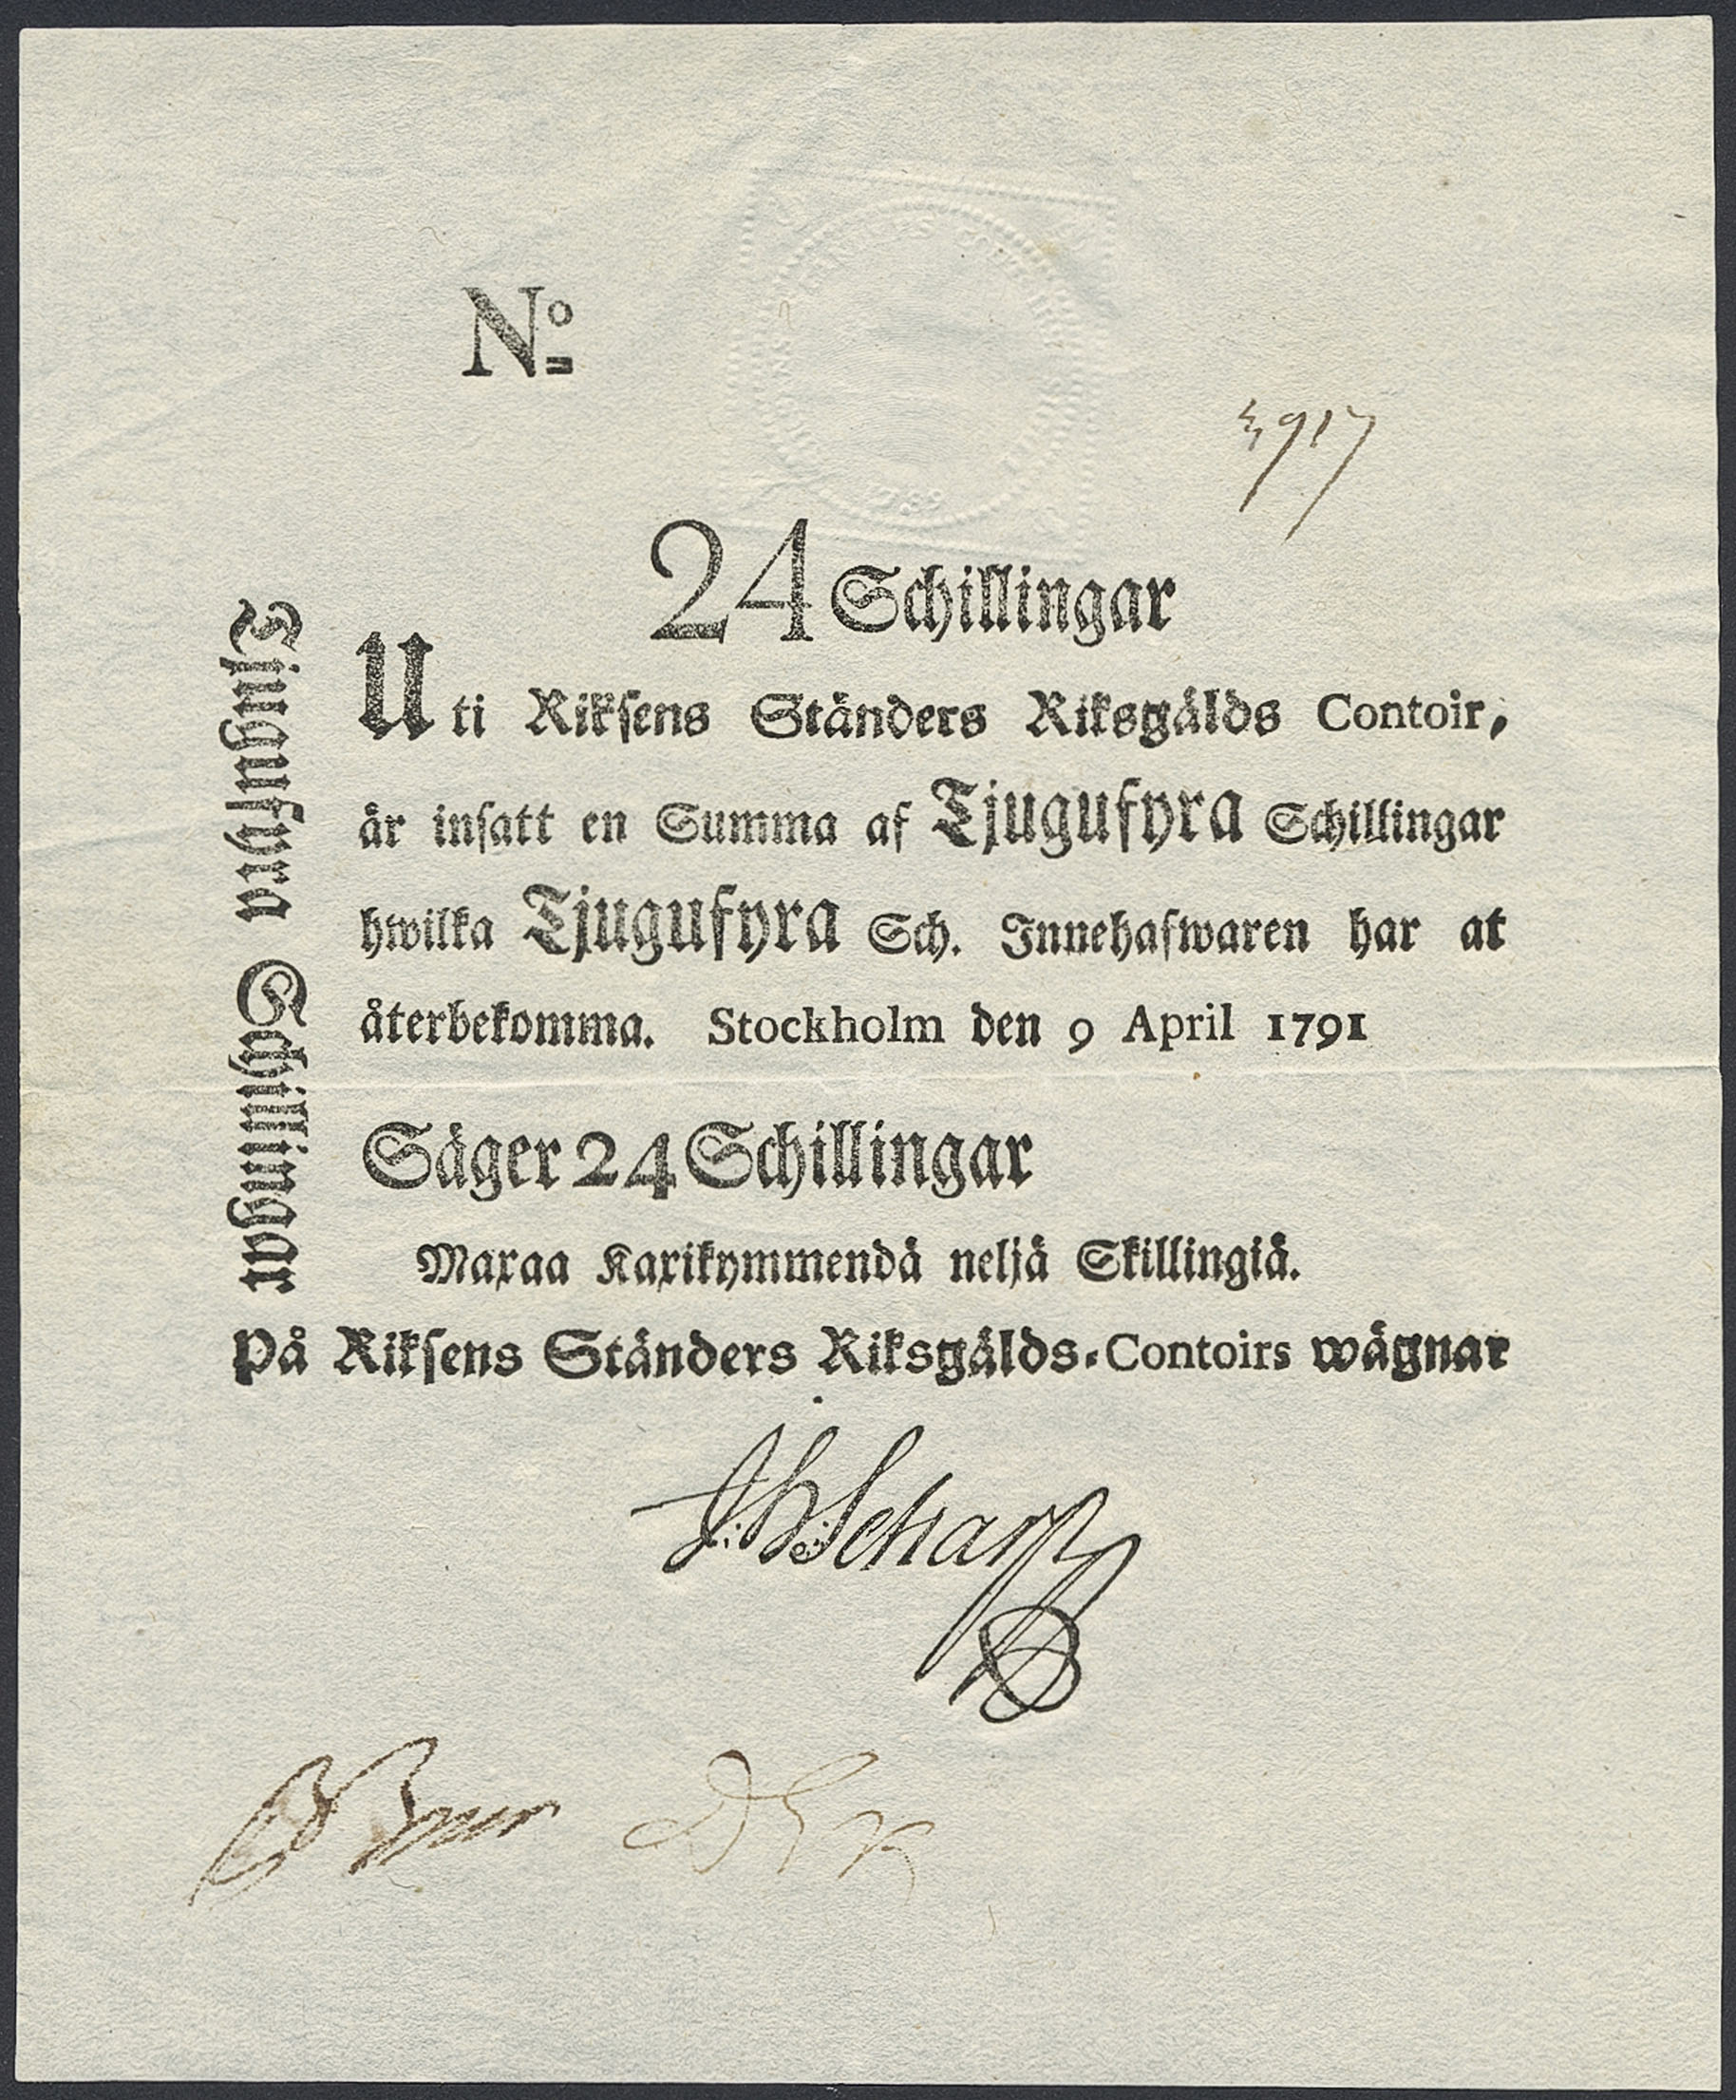 No
3917
24 Schillingar
Uti Riksens Ständers Riksgälds Contoir,
är insatt en Summa af Tjugufyra Schillingar
hwilka Tjugufyra Sch. Innehafwaren har at
återbekomma. Stockholm den 9 April 1791
Säger 24 Schillingar
Maxaa Kaxikymmendä neljä Skillingiä.
På Riksens Ständers Riksgälds-Contoirs wägnar
Scharp
Tjugufyra Schillingar